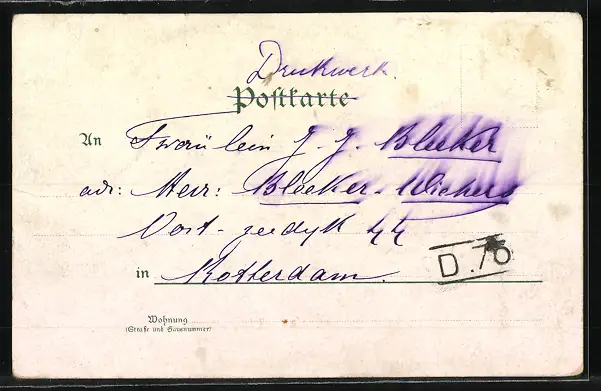 Druckwerk.
Postkarte
An Fräulein J. J. Bleeker
adr: Herr: Bleeker-Wickers
Oost-zeedyk 44
in Rotterdam.
D.76
Wohnung
(Straße und Hausnummer)